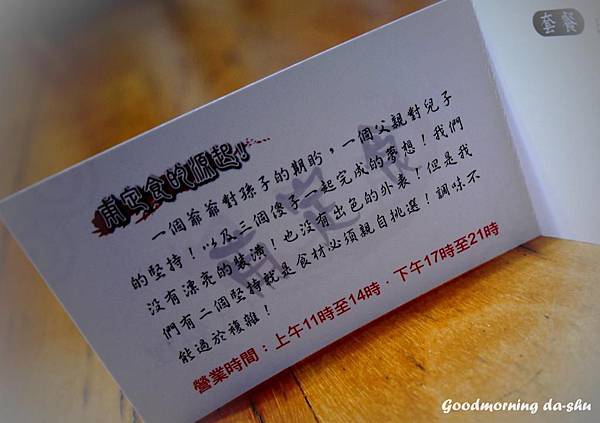 套餐
甫定食的崛起!
一個爺爺對孫子的期盼,一個父親對兒子
的堅持!以及三個傻子一起完成的夢想!我們
沒有漂亮的裝潢!也沒有出色的外表!但是我
們有二個堅持就是食材必須親自挑選!調味不
能過於複雜!
營業時間:上午11時至14時.下午17時至21時
Goodmorning da-shu